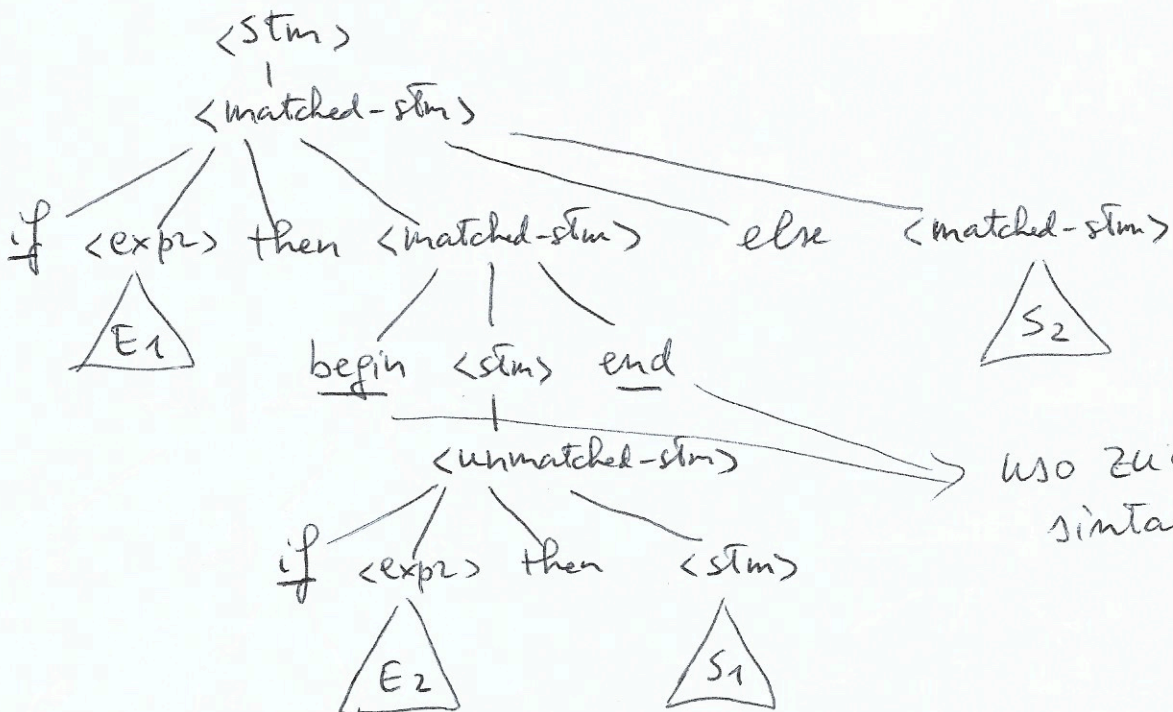 <stm>
<matched-stm>
if <expr> then <matched-stm> else <matched-stm>
E1
S2
begin <stm> end
<unmatched-stm>
uso
if <expr> then <stm>
E2
S1